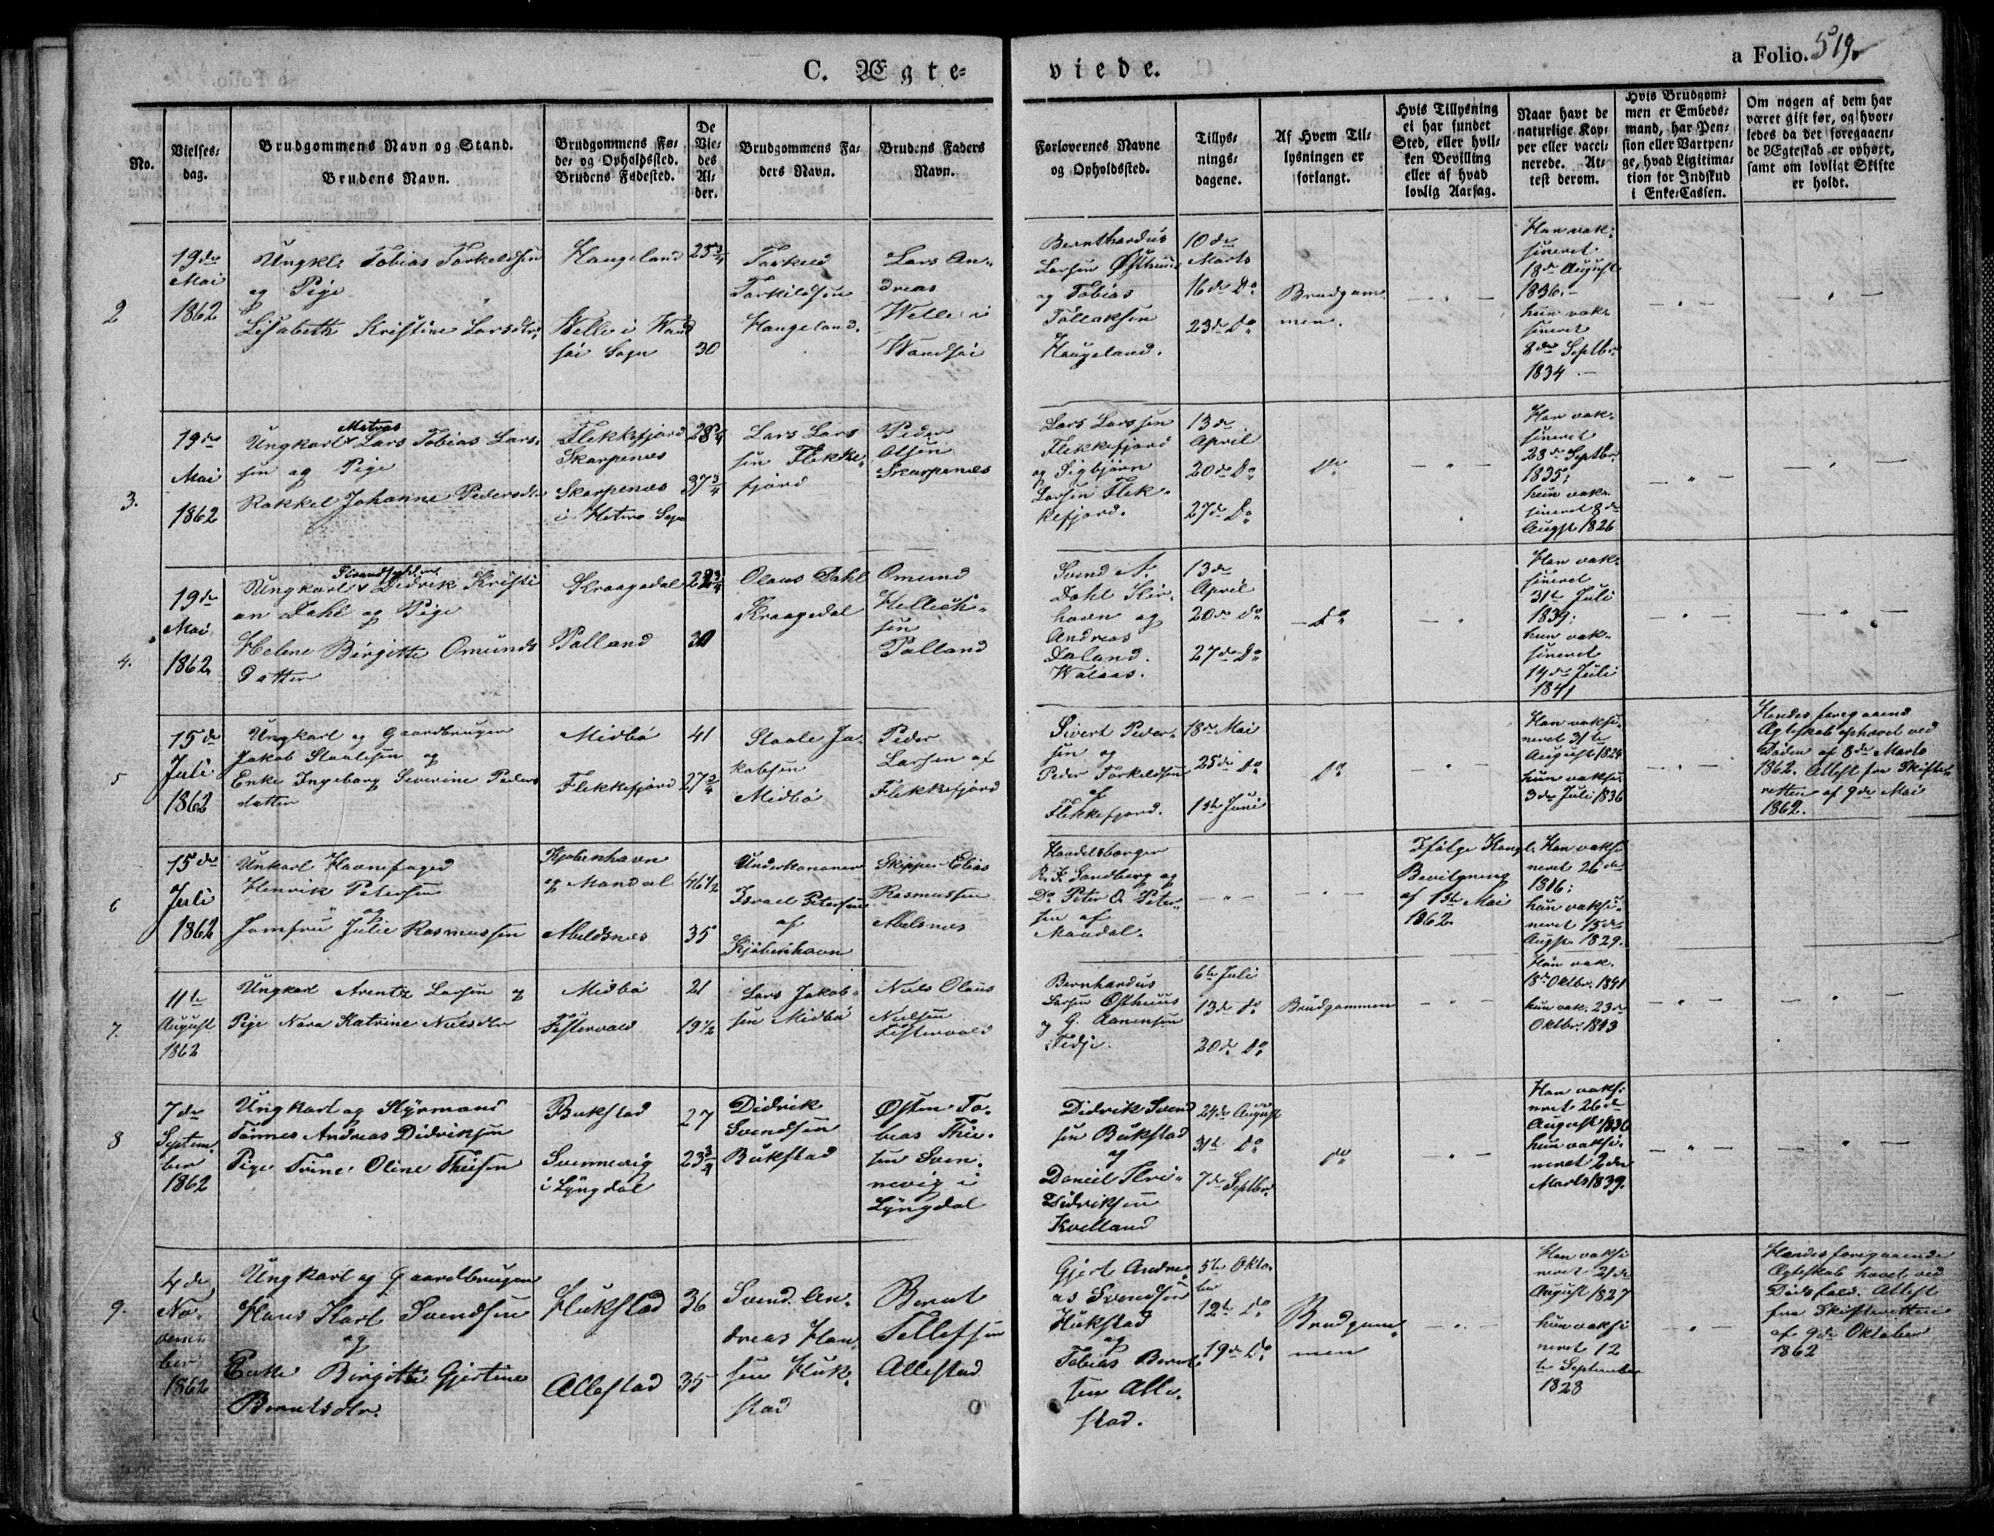 C. Ægte-
viede.
a Folio. 519.
No.
Vielses-
dag.
Brudgommens Navn og Stand.
Brudens Navn.
Brudgommens Fø-
de- og Opholdssted.
Brudens Fødested.
De
Vie-
des
Al-
der.
Brudgommens Fa-
ders Navn.
Brudens Faders
Navn.
Forlovernes Navne
og Opholdssted.
Tillys-
nings-
dagene.
Af Hvem Til-
lysningen er
forlangt.
Hvis Tillysning
ei har fundet
Sted, eller hvil-
ken Bevilling
eller af hvad
lovlig Aarsag.
Naar havt de
naturlige Kop-
per eller vacci-
nerede. At-
test derom.
Hvis Brudgom-
men er Embeds-
mand, har Pen-
sion eller Vartpen-
ge, hvad Ligitima-
tion for Indskud
i Enke-Cassen.
Om nogen af dem har
været gift før, og hvor-
ledes da det foregaaen-
de Ægteskab er ophørt,
samt om lovligt Skifte
er holdt.
2
19de
Mai
1862
Ungkl. Tobias Torkeldsen
og Pige
Lisabeth Kristine Larsdtr.
Haugeland
Welle i Wand
søi Sogn
25 3/4
30
Torkeld
Torkildsen
Haugeland.
Lars An-
dreas
Welle i
Wandsøi
Bernthardus
Larsen Østhuus
og Tobias
Tollaksen
Haugeland.
10de
Marts
16de Do
23de Do
Brudgom-
men.
Han vak-
sineret
18de August
1836.-
hun vak-
sineret
8de Septbr.
1834 -
3.
19de
Mai
1862
Matros
Ungkarl Lars Tobias Lars-
sen og Pige
Rakkel Johanne Pedersdtr
Flekkefjord
Skarpenæs
Skarpenæs
i Hitterø Sogn
28 3/4
37 3/4
Lars Lars
sen Flekke-
fjord
Peder
Olsen
Skarpenæs
Lars Larssen
Flekkefjord
og Sigbjørn
Larsen Flek-
kefjord.
13de
April
20de Do
27de Do
Do
Han vak-
sineret
28de Septbr.
1835;
hun vak-
sineret 8de
Augst 1826
4.
19de
Mai
1862
Strandsidder
Ungkarl Didrik Kristi
an Dahl og Pige
Helene Birgitte Omunds
datter
Kraagedal
Palland
22 3/4
30
Olaus Dahl
Kraagedal
Omund
Hellich-
sen
Palland
Svend A.
Dahl Kir-
havn og
Andreas
Daland.
Walaas.
13de
April
20de Do
27de Do
Do
Han vak-
sineret
31te Juli
1839;
hun vak-
sineret
14de Juli
1841
5
15de
Juli
1862
Ungkarl og Gaardbruger
Jakob Staalesen og
Enke Ingeborg Severine Peders
datter
Midbø
Flekkefjord
41
27 3/4
Staale Ja-
kobsen
Midbø
Peder
Larsen af
Flekkefjord
Sivert Peder-
sen og
Peder Torkeldsen
af
Flekkefjord.
18de Mai
25de Do
1ste Juni
Do
Han vaksi-
neret 31te
August 1824
hun vaksi-
neret
3de Juli 1836
Hendes foregaaend
Ægteskab ophævet ved
Døden af 8de Marts
1862. Attest fra Skifte-
retten af 9de Mai
1862.
6
15de
Juli
1862
Unkarl Havnefoged
Henrik Petersen
og
Jomfru Julie Rasmussen
Kjøbenhavn
og Mandal
Abelsnes
46 1/2
35
Underkanoner
Israel Petersen
af
Kjøbenhavn
Skipper Elias
Rasmussen
Abelsnes
Handelsborger
R. F. Sandberg og
Do Peter O. Peter-
sen af
Mandal.
Ifølge Kongl.
Bevilgning
af 1ste Mai
1862.
Han vaksi
neret 26de
1816;
hun vaksi-
neret 15de
Augst 1829.
7.
11te
August
1862
Ungkarl Arentz Larsen og
Pige Nora Katrine Nielsdtr
Midbø
Festervold
21
19 1/2
Lars Jakob-
sen Midbø
Niels Olaus
Nielsen
Festervold
Bernhardus
Larsen Østhuus
og G. Aanensen
Tedje.
6te Juli
13de Do
20de Do
Brudgommen
Han vak.
18de Oktbr. 1841
hun vak. 23de
Oktbr. 1843
8
7de
Septem-
ber
1862
Ungkarl og Styrmand
Tønnes Andreas Didriksen
Pige Trine Oline Thiesen
Bukstad
Svennevig
i Lyngdal
27
23 3/4
Didrik
Svendsen
Bukstad
Østen To-
bias Thie-
sen Sven-
nevig i
Lyngdal
Didrik Svend
sen Bukstad
og
Daniel
Didriksen
Kvelland
24de August
31te Do
7de Septbr.
Do
Han vaksi
neret 26de
August 1836
hun vaksi-
neret 2den
Marts 1839.
9.
4de
No-
vem-
ber
1862
Ungkarl og Gaardbruger
Hans Karl Svendsen
og
Enke Birgitte Gjertine
Berntsdtr.
Hukstad
Allestad
36
35
Svend An-
dreas Han-
sen Huk-
stad
Bernt
Tellefsen
Allestad
Gjert Andre-
as Svendsen
Hukstad
og
Tobias Bernt-
sen Alle-
stad.
5te Okto-
ber
12te Do
19de Do
Brudgom-
men
Han vaksi
neret 21de
August 1827
hun vaksi
neret 12
te September
1828
Hendes foregaaende
Ægteskab hævet ved
Dødsfald. Attest
fra Skifteretten
af 9de Oktober
1862